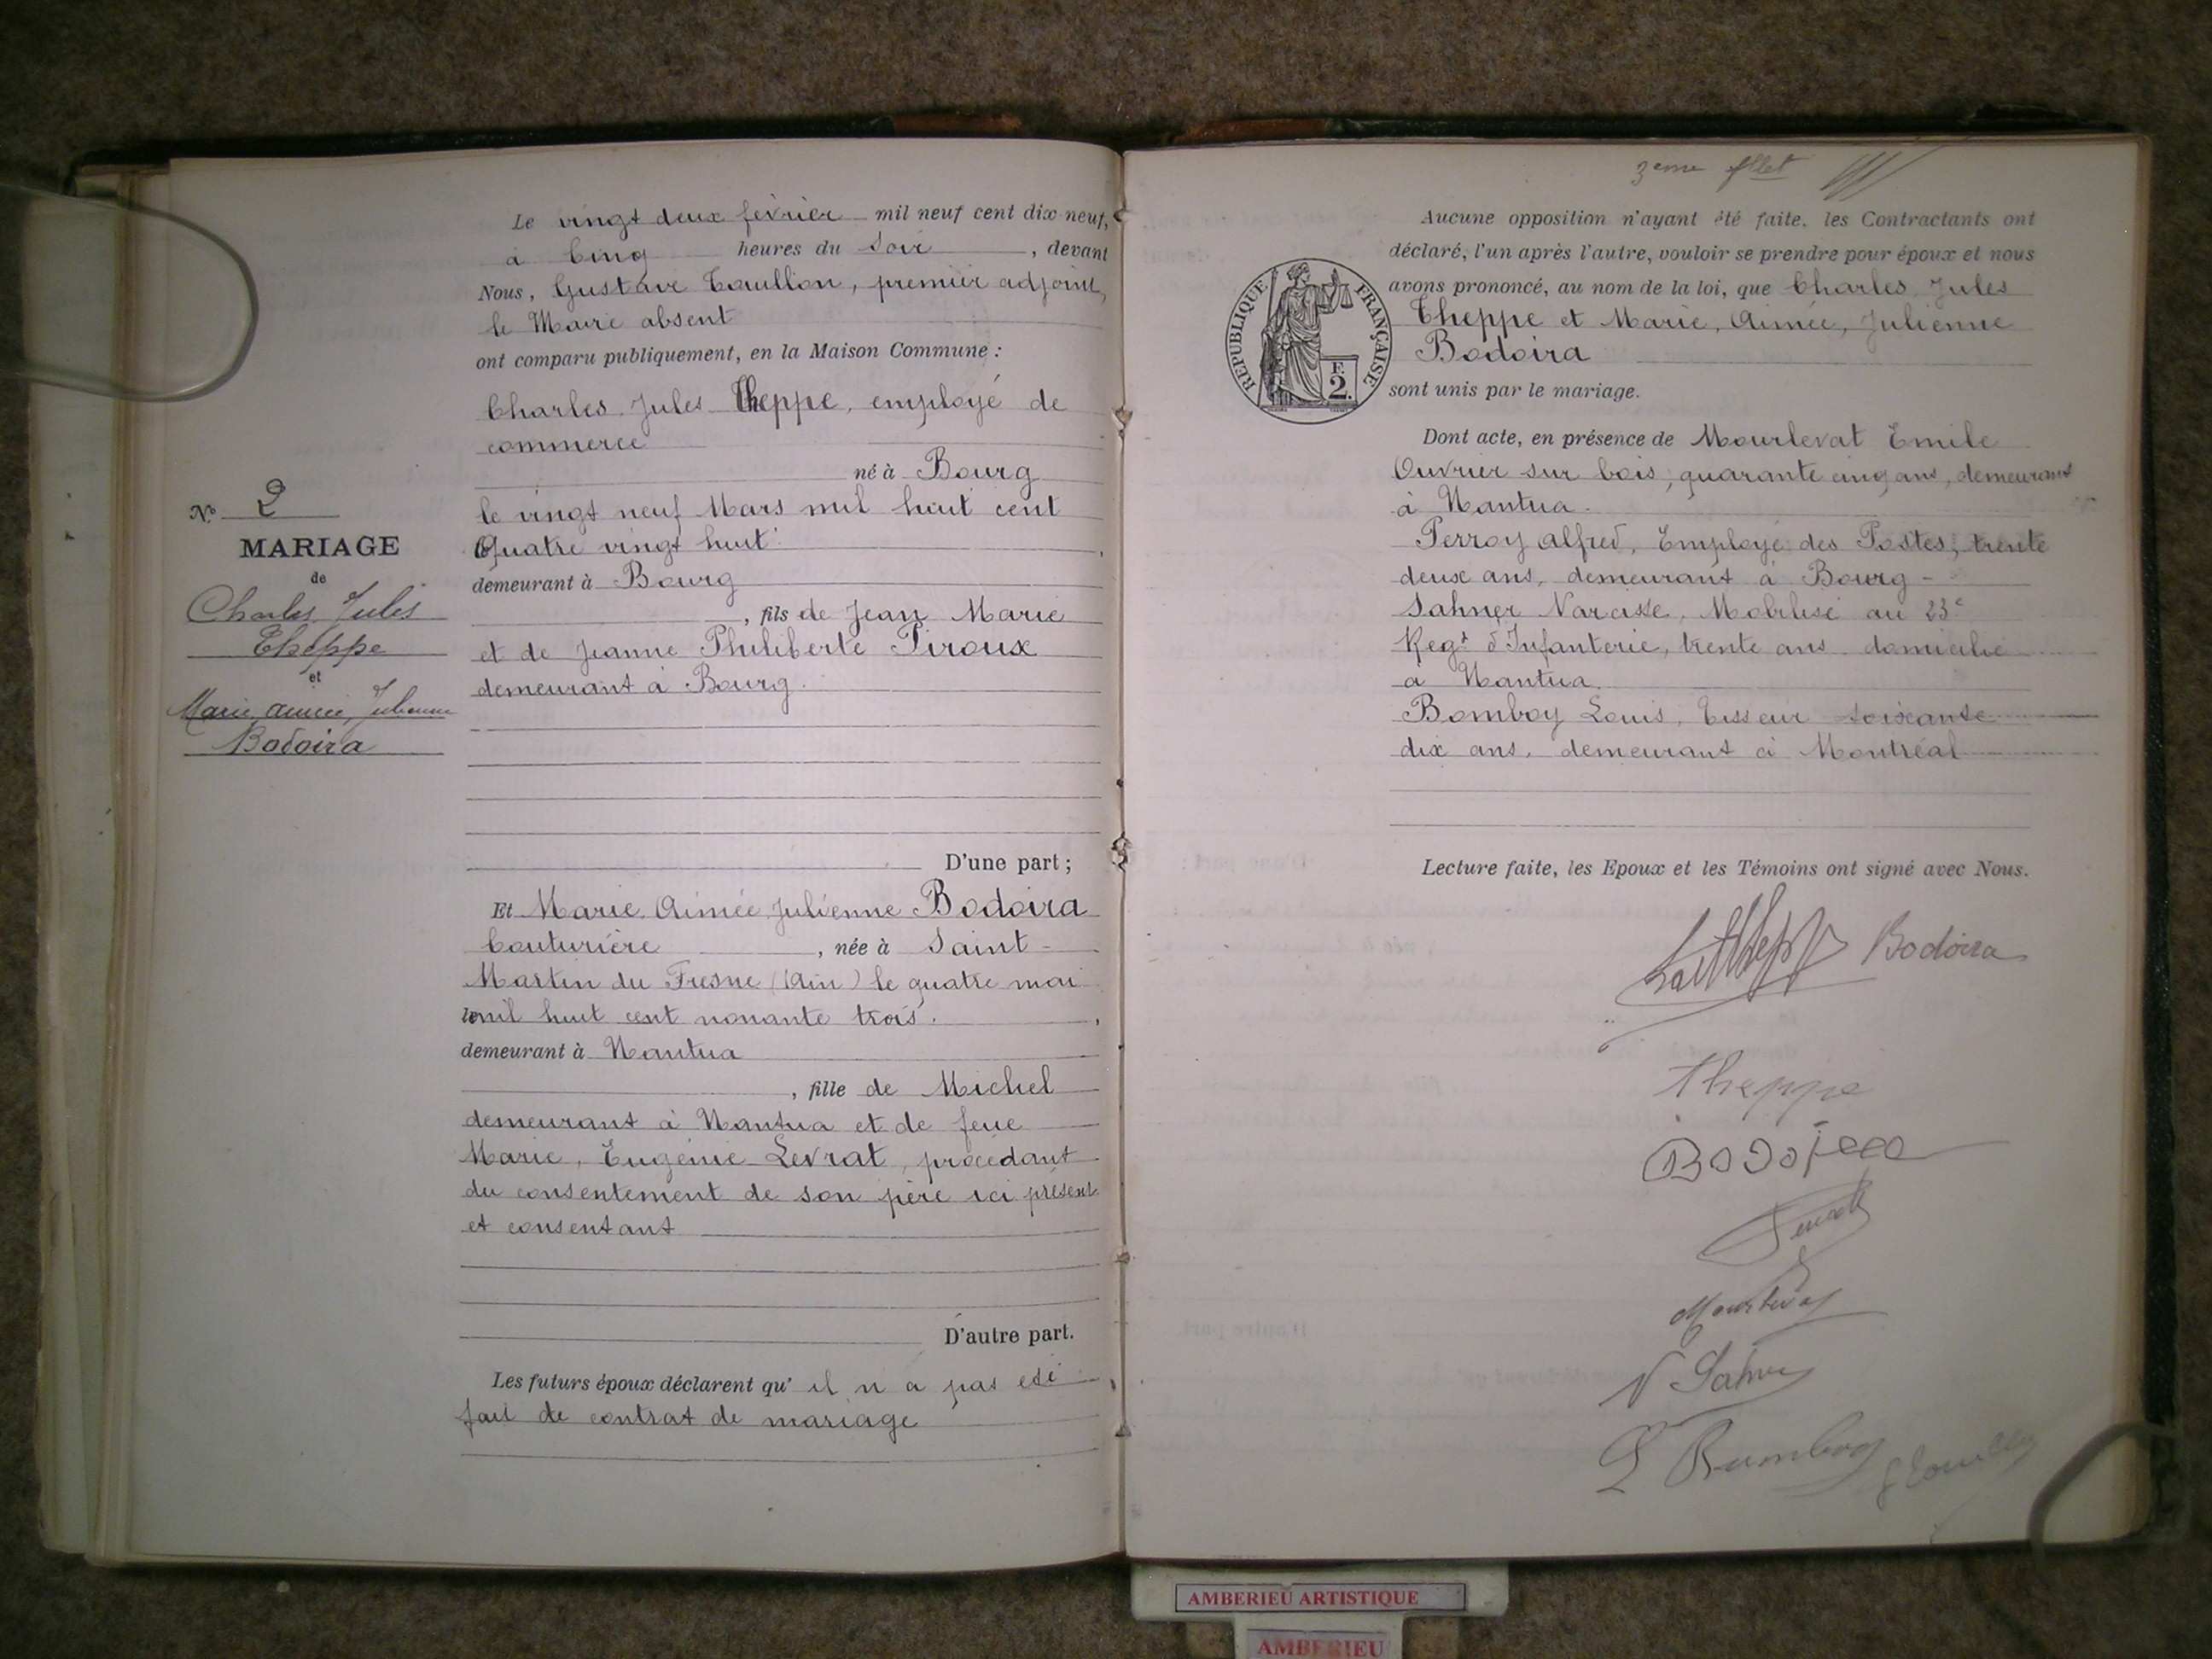 Le vingt deux fevrier mil neuf cent dix neuf,
à Cinq heures du Soir, devant
Nous, Gustave Touillon, premier adjoint,
le Maire absent
ont comparu publiquement, en la Maison Commune :
Charles Jules Theppe, employé de
commerce
né à Bourg
le vingt neuf Mars mil huit cent
Quatre vingt huit
demeurant à Bourg
, fils de Jean Marie
et de Jeanne Philiberte Piroux
demeurant à Bourg.
D'une part ;
Et Marie Aimée Julienne Bodoira
Couturière, née à Saint-
Martin du Fresne (Ain) le quatre mai
mil huit cent nonante trois.
demeurant à Nantua
, fille de Michel
demeurant à Nantua et de feue
Marie, Eugénie Levrat, procédant
du consentement de son père ici présent
et consentant
D'autre part.
Les futurs époux déclarent qu' il n'a pas été
fait de contrat de mariage
No 2
MARIAGE
de
Charles Jules
Theppe
et
Marie, Aimée, Julienne
Bodoira
3eme fllet
RÉPUBLIQUE FRANÇAISE
F.
2.
Aucune opposition n'ayant été faite, les Contractants ont
déclaré, l'un après l'autre, vouloir se prendre pour époux et nous
avons prononcé, au nom de la loi, que Charles Jules
Theppe et Marie, Aimée, Julienne
Bodoira
sont unis par le mariage.
Dont acte, en présence de Mourlevat Emile
Ouvrier sur bois, quarante cinq ans, demeurant
à Nantua.
Perroy Alfred, Employé des Postes, trente
deux ans, demeurant à Bourg -
Sahner Narcisse, Mobilisé au 23e
Regt d'Infanterie, trente ans domicilié
à Nantua.
Bomboy Louis, Tisseur soixante
dix ans, demeurant à Montréal
Lecture faite, les Epoux et les Témoins ont signé avec Nous.
Bodoira
Theppe
Bodoira
Mourlevat
N Sahner
L Bomboy
AMBERIEU ARTISTIQUE
AMBERIEU